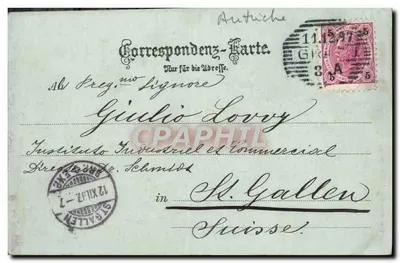 Autriche
11.12.97
5 5
5 5
Correspondenz-Karte.
Nur für die Adresse.
Al Preg.mo Signore
Giulio Lovvy
CPARHIL
Instituto Industriel et Commercial
Dr. Schmidt
in St. Gallen
Suisse.
ST. GALLEN
12.XII.97.-7